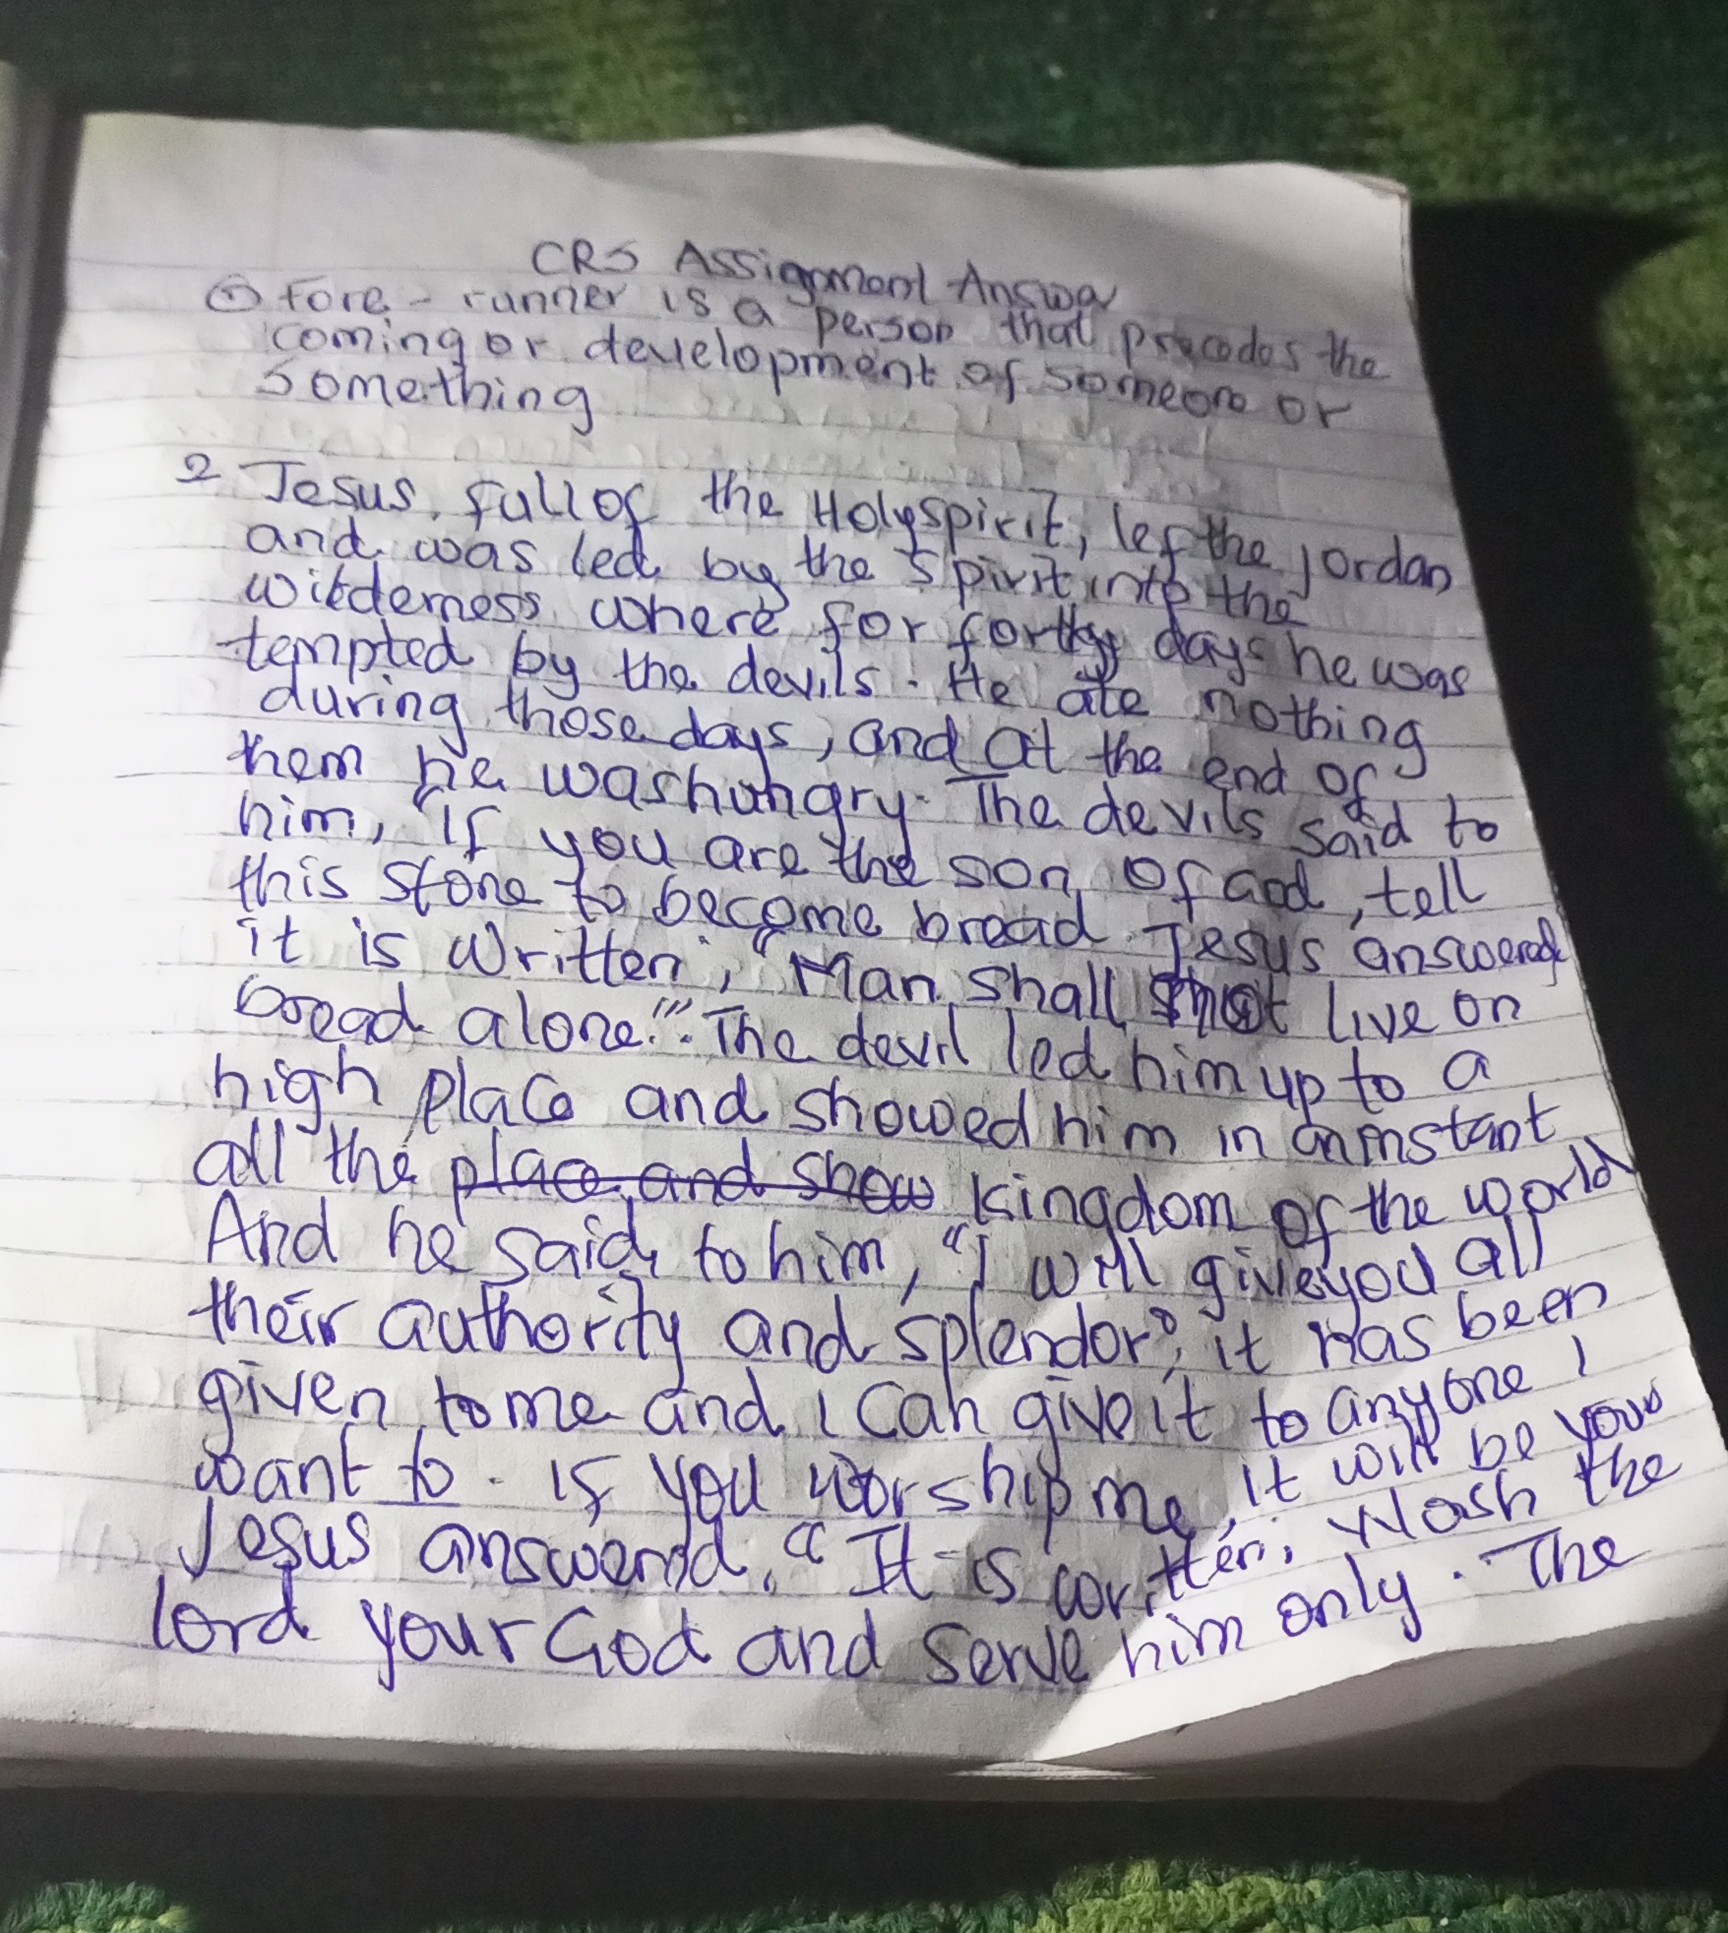 CRS Assignment Answer
① Fore-runner is a person that precedes the
coming or development of someone or
something
2 Jesus, full of the Holyspirit, lef the Jordan
and was led by the Spirit into the
wilderness where for forty days he was
tempted by the devils. He ate nothing
during those days, and at the end of
them he was hungry. The devils said to
him, "If you are the son of God, tell
this stone to become bread. Jesus answered
it is written, "Man shall not live on
bread alone."" The devil led him up to a
high place and showed him in an instant
all the place and show kingdom of the world
And he said to him, "I will give you all
their authority and splendor", it has been
given to me and I can give it to anyone I
want to. If you worship me, it will be your
Jesus answered, "It is written: Wosh the
lord your God and serve him only. The